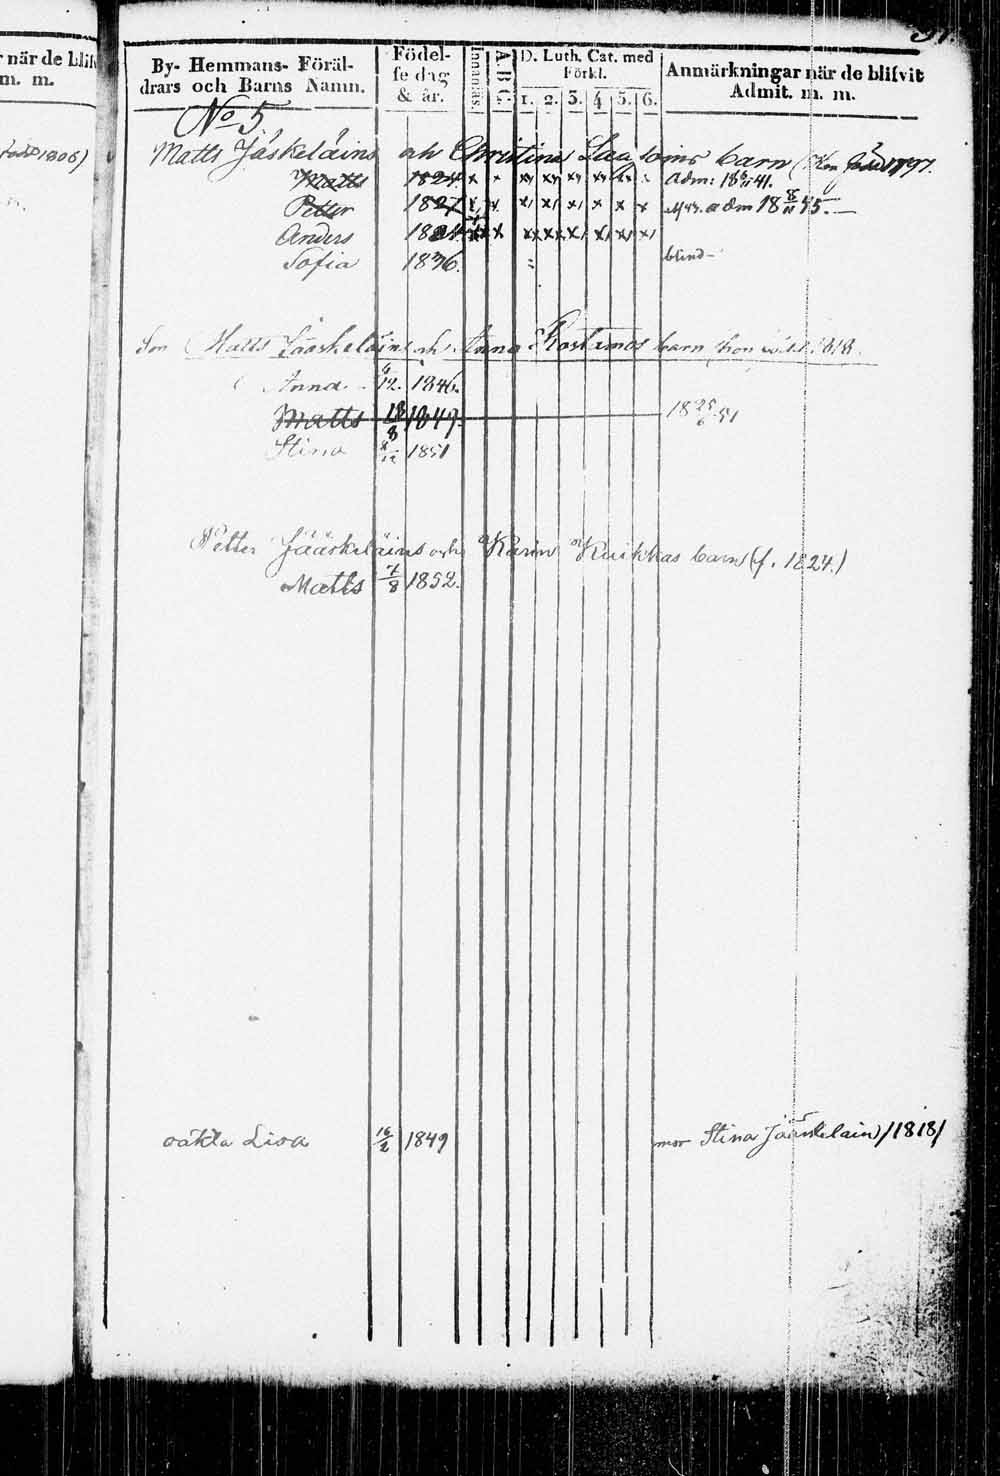 när de blifv
m. m.
1806)
37.
By- Hemmans- Föräl-
drars och Barns Namn.
Födel-
se dag
& år.
Innanläs
A B C.
D. Luth. Cat. med
Förkl.
1. 2. 3. 4. 5. 6.
Anmärkningar när de blifvit
Admit. m. m.
No 5
Matts Jäskeläins och Christina barn (född 1797.
Matts 1824 x x x x x x x Adm: 18 41.
Petter 1827 x x x x x x x x adm 18 8/11 45.
Anders x x x x x x x x
Sofia 1836. blind
Son Matts Jääskeläins och Anna Rostamos barn hon född 1818.
Anna 6/12. 1846.
Matts 18/8 1847. 18 25/6 51
Stina 1851
Petter Jääskeläins och Karin Kuikkas barn (f. 1824.)
Matts 7/8 1852.
oäkta Lisa 16/2 1849 mor Stina Jääskelain /1818/